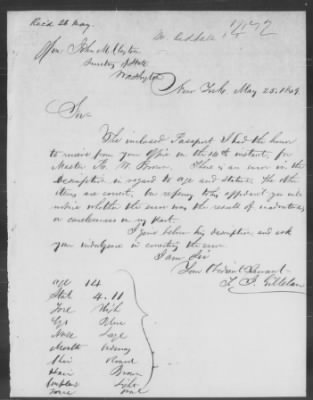 Recd 26 May.
1472
Hon. John M. Clayton
Secretary of State
Washington
New York, May 25, 1849
Sir
The enclosed Passport I had the honor
to receive from your Office on the instant, for
Master Brown. There is an error in the
description in regard to age and stature. The other
items are correct. by refering to his affidavit you will
notice whether the error was the result of inadvertency
or carelessness on my part.
I give below his description and ask
your indulgence in correcting the error.
I am Sir
Your Obedient Servant
age 14
Stat 4.11
Fore High
Eyes Blue
Nose Large
Mouth ordinary
Chin Round
Hair Brown
Complexion Light
Face Oval